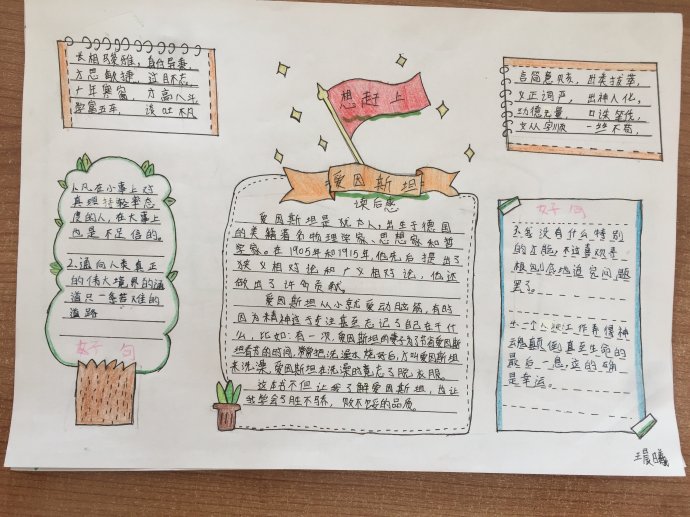 想赶上
爱因斯坦
读后感
爱因斯坦是犹太人，出生于德国
的美籍著名物理学家、思想家和哲
学家。在1905年和1915年，他先后提出了
狭义相对论和广义相对论，他还
做出了许多贡献。
爱因斯坦从小就爱动脑筋，有时
因为精神过于专注甚至忘记了自己在干什
么，比如：有一次，爱因斯坦的妻子为了节省爱因斯
坦看书的时间，帮他把洗澡水烧好后，才叫爱因斯坦
来洗澡，爱因斯坦在洗澡时竟忘了脱衣服。
这本书不但让我了解爱因斯坦，也让
我学会了胜不骄，败不馁的品质。
才思敏捷，过目不忘，
十年寒窗，才高八斗，
学富五车，谈吐不凡
言简意赅，出类拔萃，
义正词严，出神入化。
功德无量，口诛笔伐，
文从字顺，一丝不苟，
1.凡在小事上对
真理持轻率态
度的人，在大事上
也是不足信的。
2.通向人类真正
的伟大境界的通
道只一条苦难的
道路
好句
好句
3.我没有什么特别
的才能，不过喜欢寻
根刨底地追究问题
罢了。
神
魂颠倒直至生命的
最后一息，它的确
是幸运。
王晨曦